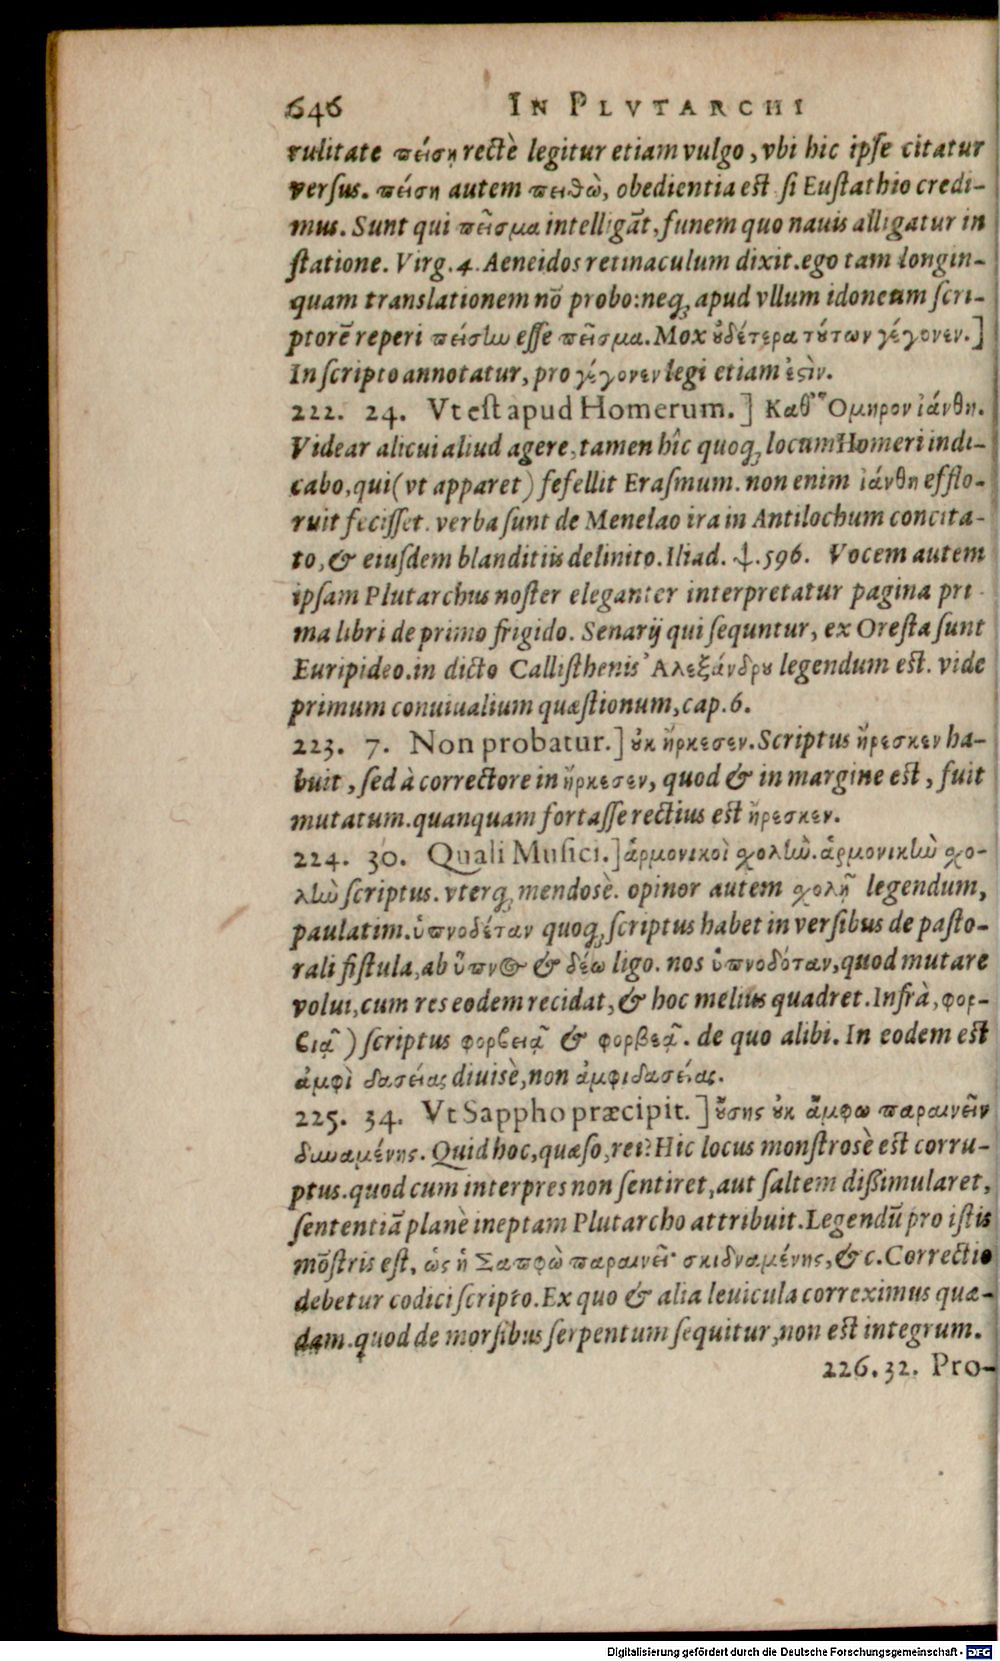 646 IN PLVTARCHI
rulitate πείσῃ rectè legitur etiam vulgo, vbi hic ipſe citatur
verſus. πείσῃ autem πειθὼ, obedientia eſt ſi Euſtathio credi-
mus. Sunt qui πεῖσμα intelligāt, funem quo nauis alligatur in
ſtatione. Virg. 4. Aeneidos retinaculum dixit. ego tam longin-
quam translationem nō probo: neq; apud vllum idoneum ſcri-
ptorē reperi πείσῃν eſſe πεῖσμα. Mox οὐδέτερα τούτων γέγονεν.]
In ſcripto annotatur, pro γέγονεν legi etiam ἐςὶν.
222. 24. Vt eſt apud Homerum.] Καθ' Ὅμηρον ἰάνθη.
Videar alicui aliud agere, tamen hîc quoq; locum Homeri indi-
cabo, qui (vt apparet) fefellit Eraſmum. non enim ἰάνθη efflo-
ruit feciſſet. verba ſunt de Menelao ira in Antilochum concita-
to, & eiuſdem blanditiis delinito. Iliad. ψ. 596. Vocem autem
ipſam Plutarchus noſter eleganter interpretatur pagina pri
ma libri de primo frigido. Senarij qui ſequntur, ex Oreſta ſunt
Euripideo. in dicto Calliſthenis Ἀλεξάνδρου legendum eſt. vide
primum conuiualium quæſtionum, cap. 6.
223. 7. Non probatur.] οὐκ ἤρκεσεν. Scriptus ἤρεσκεν ha-
buit, ſed à correctore in ἤρκεσεν, quod & in margine eſt, fuit
mutatum. quanquam fortaſſe rectius eſt ἤρεσκεν.
224. 30. Quali Muſici.] ἁρμονικοὶ χολὴν. ἁρμονικὴν χο-
λὴν ſcriptus. vterq; mendosè. opinor autem χολῇ legendum,
paulatim. ὑπνοδέταν quoq; ſcriptus habet in verſibus de paſto-
rali fiſtula, ab ὕπνος & δέω ligo. nos ὑπνοδόταν, quod mutare
volui, cum res eodem recidat, & hoc melius quadret. Infrà, φορ-
βιᾷ) ſcriptus φορβειᾷ & φορβεᾷ. de quo alibi. In eodem eſt
ἀμφὶ δασείας diuisè, non ἀμφιδασείας.
225. 34. Vt Sappho præcipit.] οὔσης οὐκ ἄμφω παραινεῖν
δυναμένης. Quid hoc, quæſo, rei? Hic locus monſtrosè eſt corru-
ptus. quod cum interpres non ſentiret, aut ſaltem dißimularet,
ſententiā planè ineptam Plutarcho attribuit. Legendū pro iſtis
mōſtris eſt, ὡς ἡ Σαπφὼ παραινεῖ· σκιδναμένης, &c. Correctio
debetur codici ſcripto. Ex quo & alia leuicula correximus quæ-
dam. quod de morſibus ſerpentum ſequitur, non eſt integrum.
226. 32. Pro-
Digitalisierung gefördert durch die Deutsche Forschungsgemeinschaft - DFG